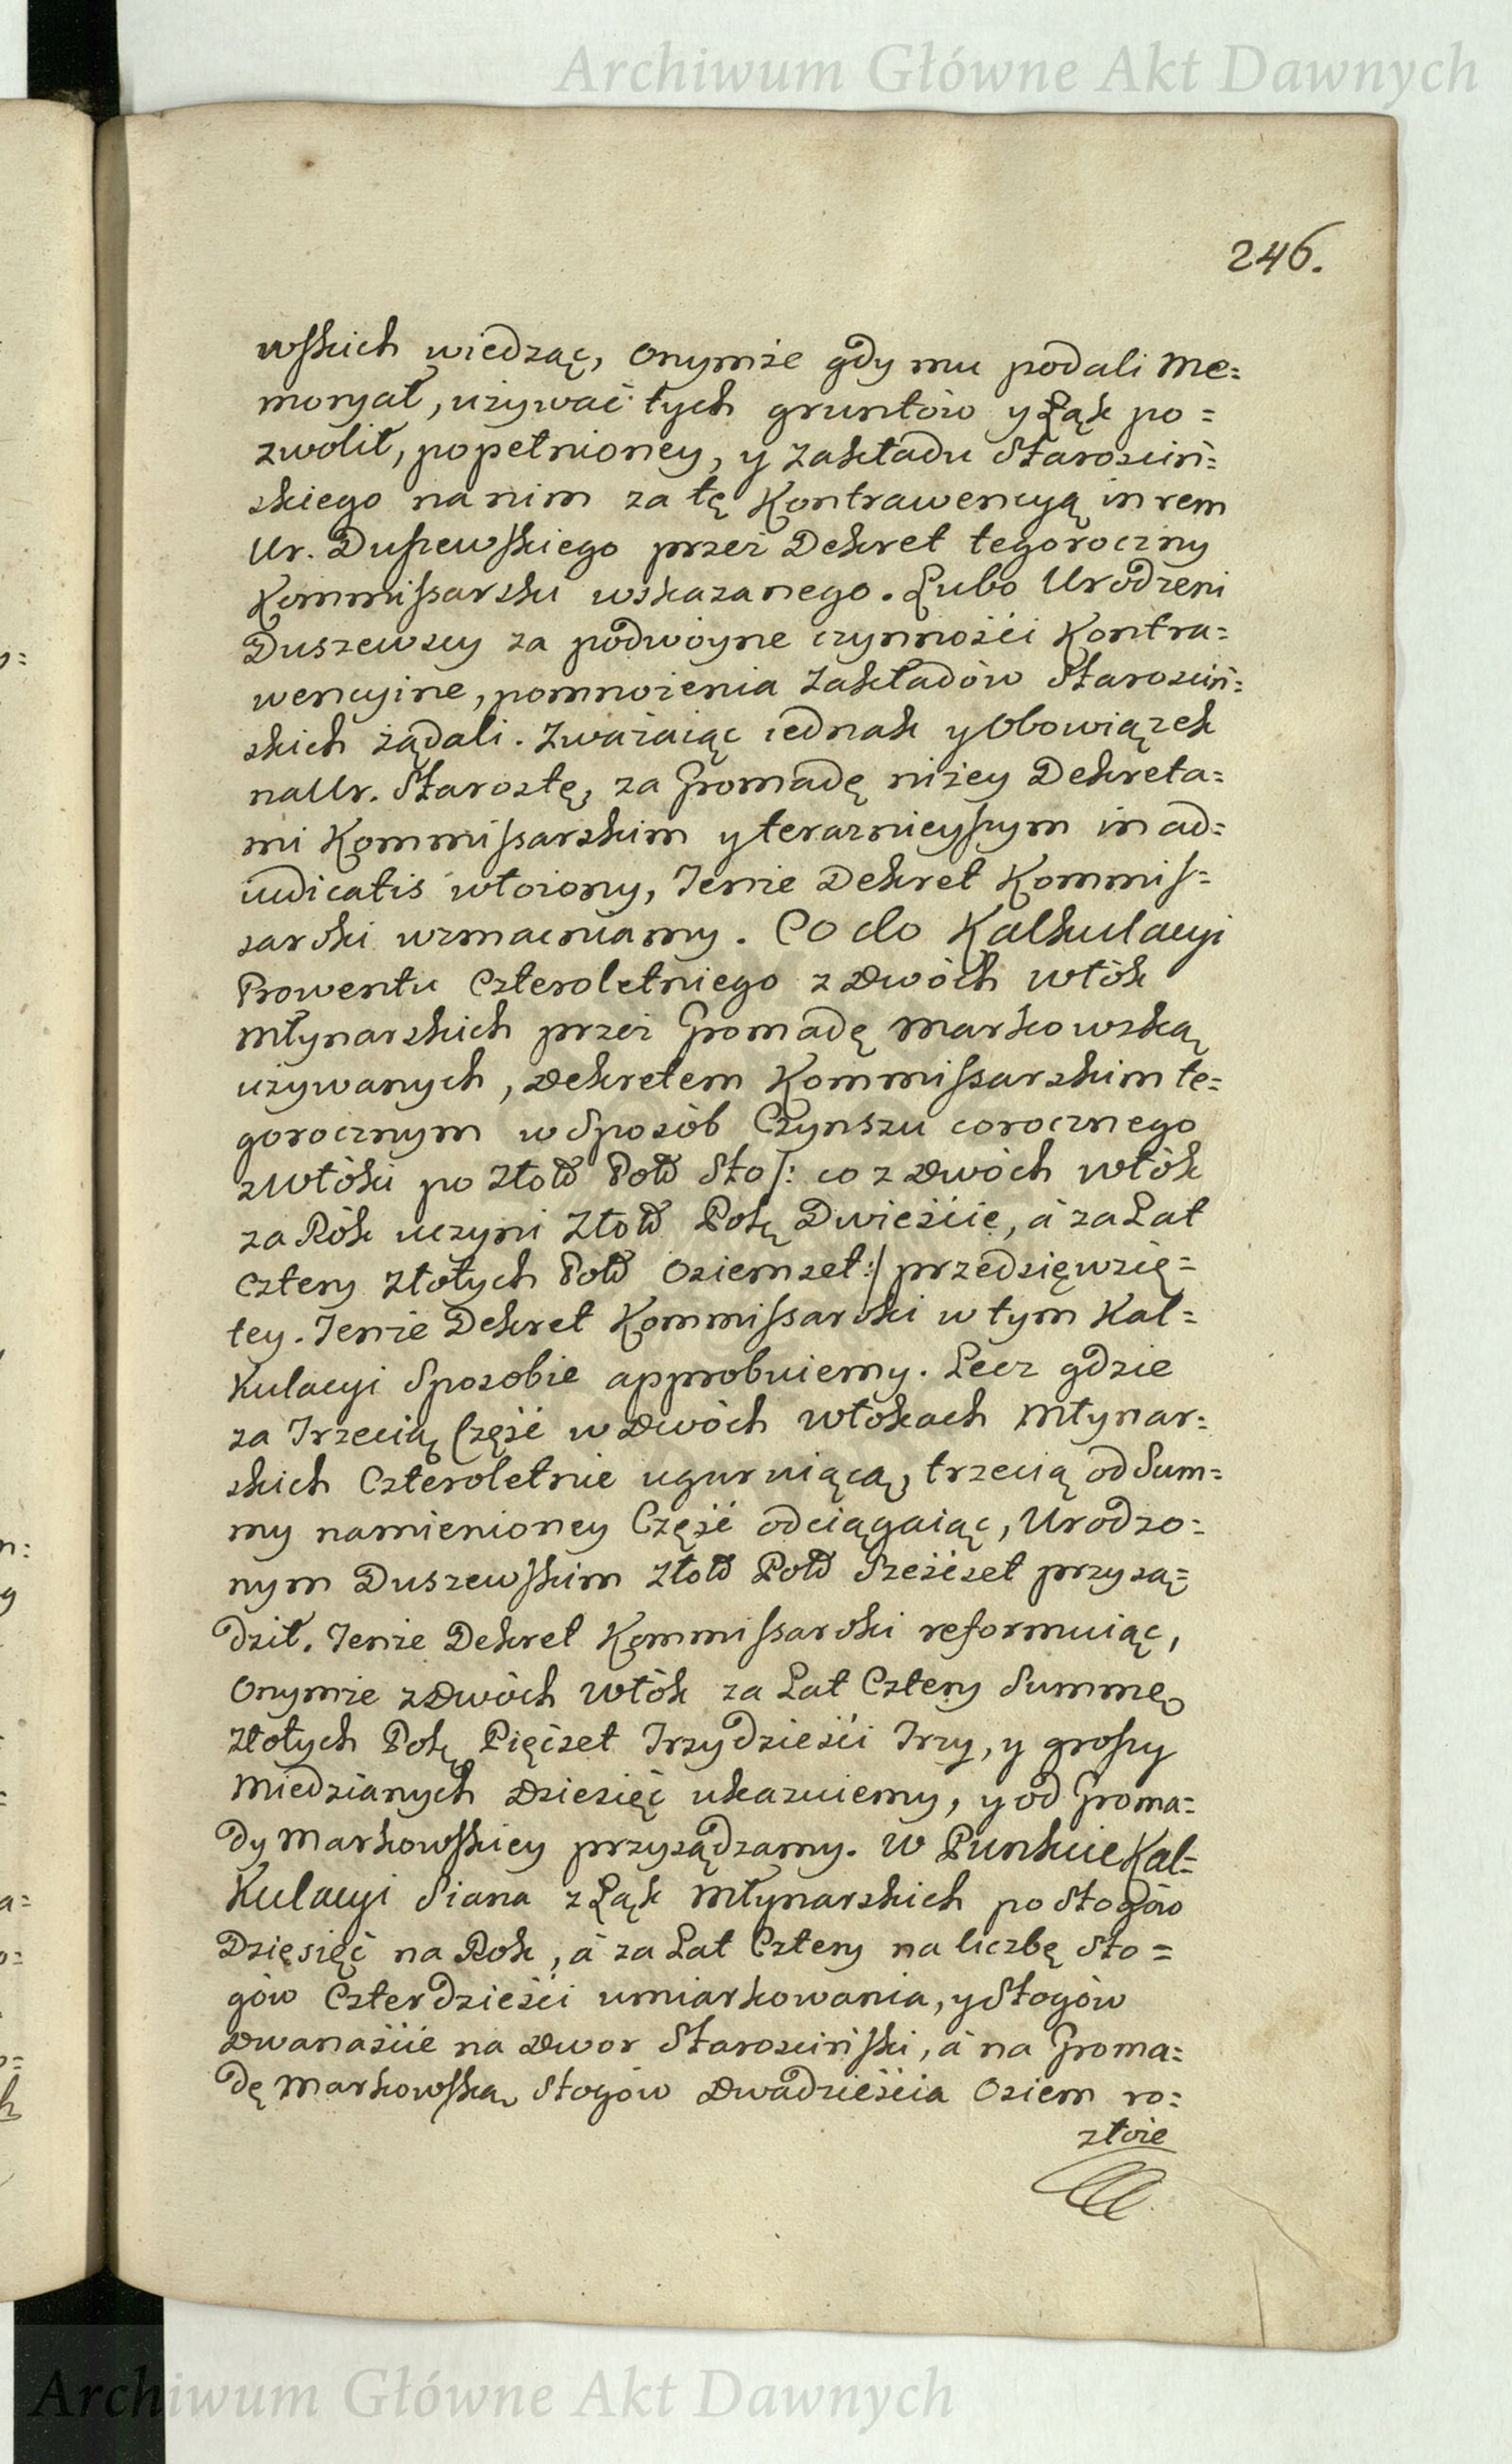 Archiwum Główne Akt Dawnych
246.
wskich wiedząc, onymże gdy mu podali Me=
moryał, używać tych gruntów y Łąk po=
zwolił, popełnioney, y Zakładu Starościń=
skiego na nim za tę Kontrawencyą in rem
Ur. Duszewskiego przez Dekret tegoroczny
Kommissarski wskazanego. Lubo Urodzeni
Duszewscy za podwóyne czynności Kontra=
wencyine, pomnożenia Zakładów Starościń=
skich żądali. Zważaiąc iednak y Obowiązek
na Ur. Starostę, za Gromadę niżey Dekreta=
mi Kommissarskim y teraznieyszym in ad=
iudicatis włożony, Tenże Dekret Kommis=
sarski wzmacniamy. Co do Kalkulacyi
Prowentu Czteroletniego z Dwóch włók
Młynarskich przez Gromadę Markowską
używanych, Dekretem Kommissarskim te=
gorocznym w Sposób Czynszu corocznego
z Włóki po Złotł Polł Sto/: co z Dwóch włók
za Rók uczyni Złotł Polę Dwieście, á za Lat
cztery Złotych Polł Osiemset:/ przedsięwzię=
tey. Tenże Dekret Kommissarski w tym Kal=
kulacyi Sposobie approbuiemy. Lecz gdzie
za Trzecią Część w Dwóch Włókach Młynar=
skich Czteroletnie uguruiącą, trzecią od Sum=
my namienioney Część odciągaiąc, Urodzo=
nym Duszewskim Złotł Polł Sześćset przysą=
dził. Tenże Dekret Kommissarski reformuiąc,
Onymże z Dwóch Włók za Lat Cztery Summę
Złotych Polę Pięćset Trzydzieści Trzy, y groszy
Miedzianych Dziesięć ukazuiemy, y od Groma=
dy Markowskiey przysądzamy. W Punkcie Kal=
kulacyi Siana z Łąk Młynarskich po Stogów
Dziesięć na Rok, á za Lat Cztery na liczbę Sto=
gów Czterdzieści umiarkowania, y Stogów
Dwanaście na Dwor Starościński, á na Groma=
dę Markowską Stogów Dwadzieścia Osiem ro=
złoże
Archiwum Główne Akt Dawnych